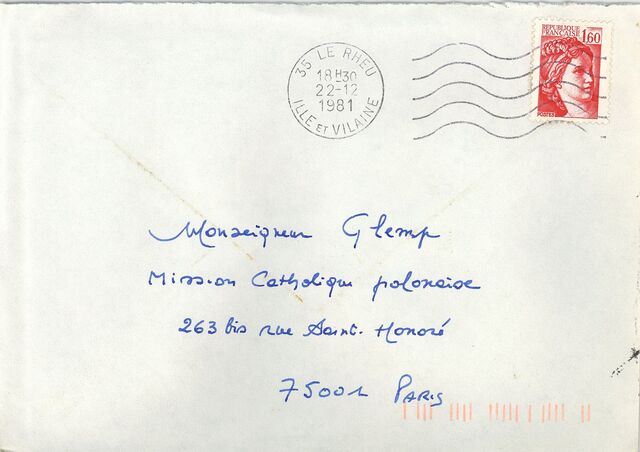 35 LE RHEU
18H30
22-12
1981
ILLE ET VILAINE
REPUBLIQUE
FRANÇAISE
1,60
POSTES
Monseigneur Glemp
Mission Catholique polonaise
263 bis rue Saint-Honoré
75001 PARIS